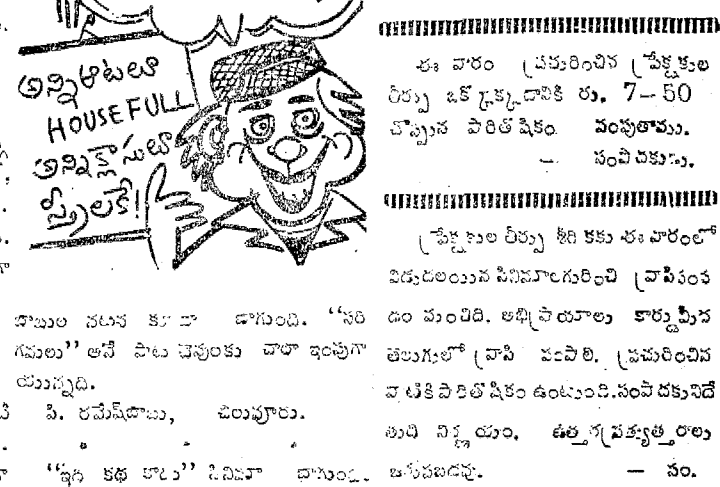 అన్నిఆటలూ
HOUSEFULL
అన్నిక్లాసులూ
స్త్రీలకే!
బాబుల నటన కూడా బాగుంది. “సరి
గమలు” అనే పాట చెవులకు చాలా ఇంపుగా
యున్నది.
పి. రమేష్‌బాబు, చిలువూరు.
“ఇది కథ కాదు” సినిమా బాగుంది.
ఈ వారం ప్రచురించిన ప్రేక్షకుల
తీర్పు ఒక్కొక్కదానికి రు. 7–50
చొప్పున పారితోషికం పంపుతాము.
— సంపాదకుడు.
ప్రేక్షకుల తీర్పు శీర్షికకు ఈ వారంలో
విడుదలయిన సినిమాలగురించి వ్రాసిపంప
డం మంచిది. అభిప్రాయాలు కార్డుమీద
తెలుగులో వ్రాసి పంపాలి. ప్రచురించిన
వాటికి పారితోషికం ఉంటుంది.సంపాదకునిదే
తుది నిర్ణయం. ఉత్తర ప్రత్యుత్తరాలు
జరుపబడవు. — సం.